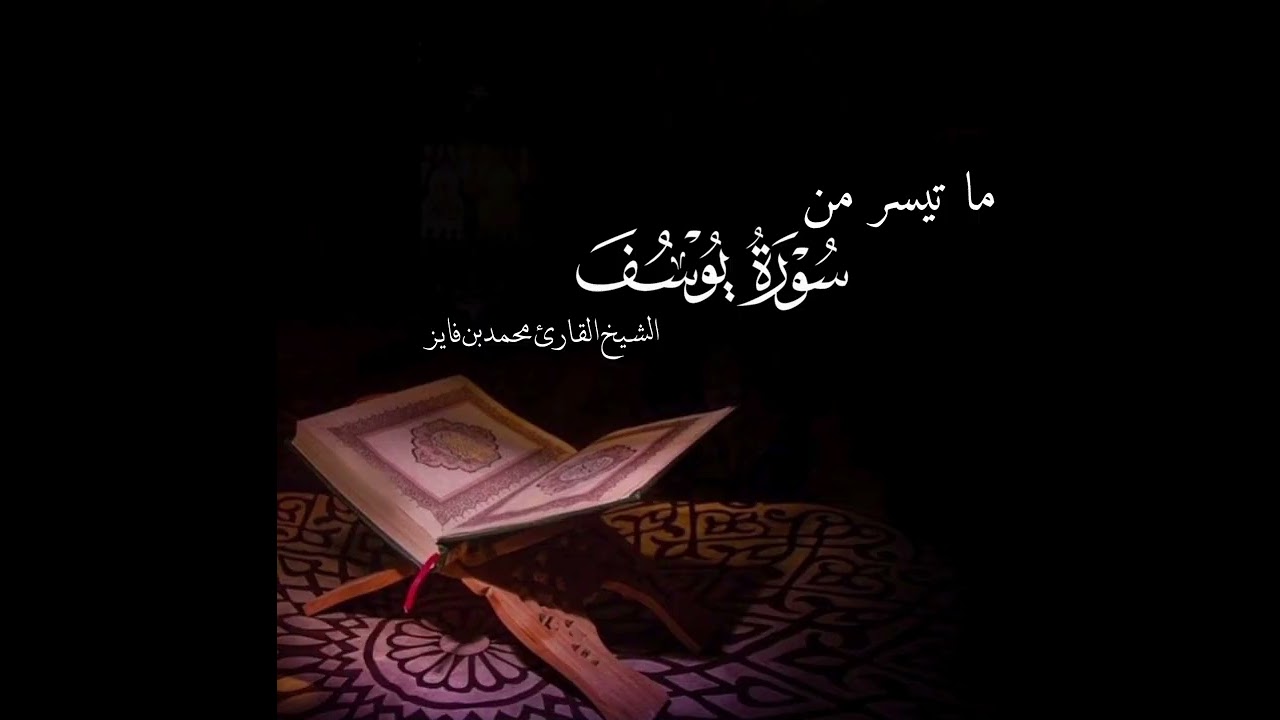 ما تيسر من
سُوْرَةُ يُوْسُفَ
الشيخ القارئ محمد بن فايز